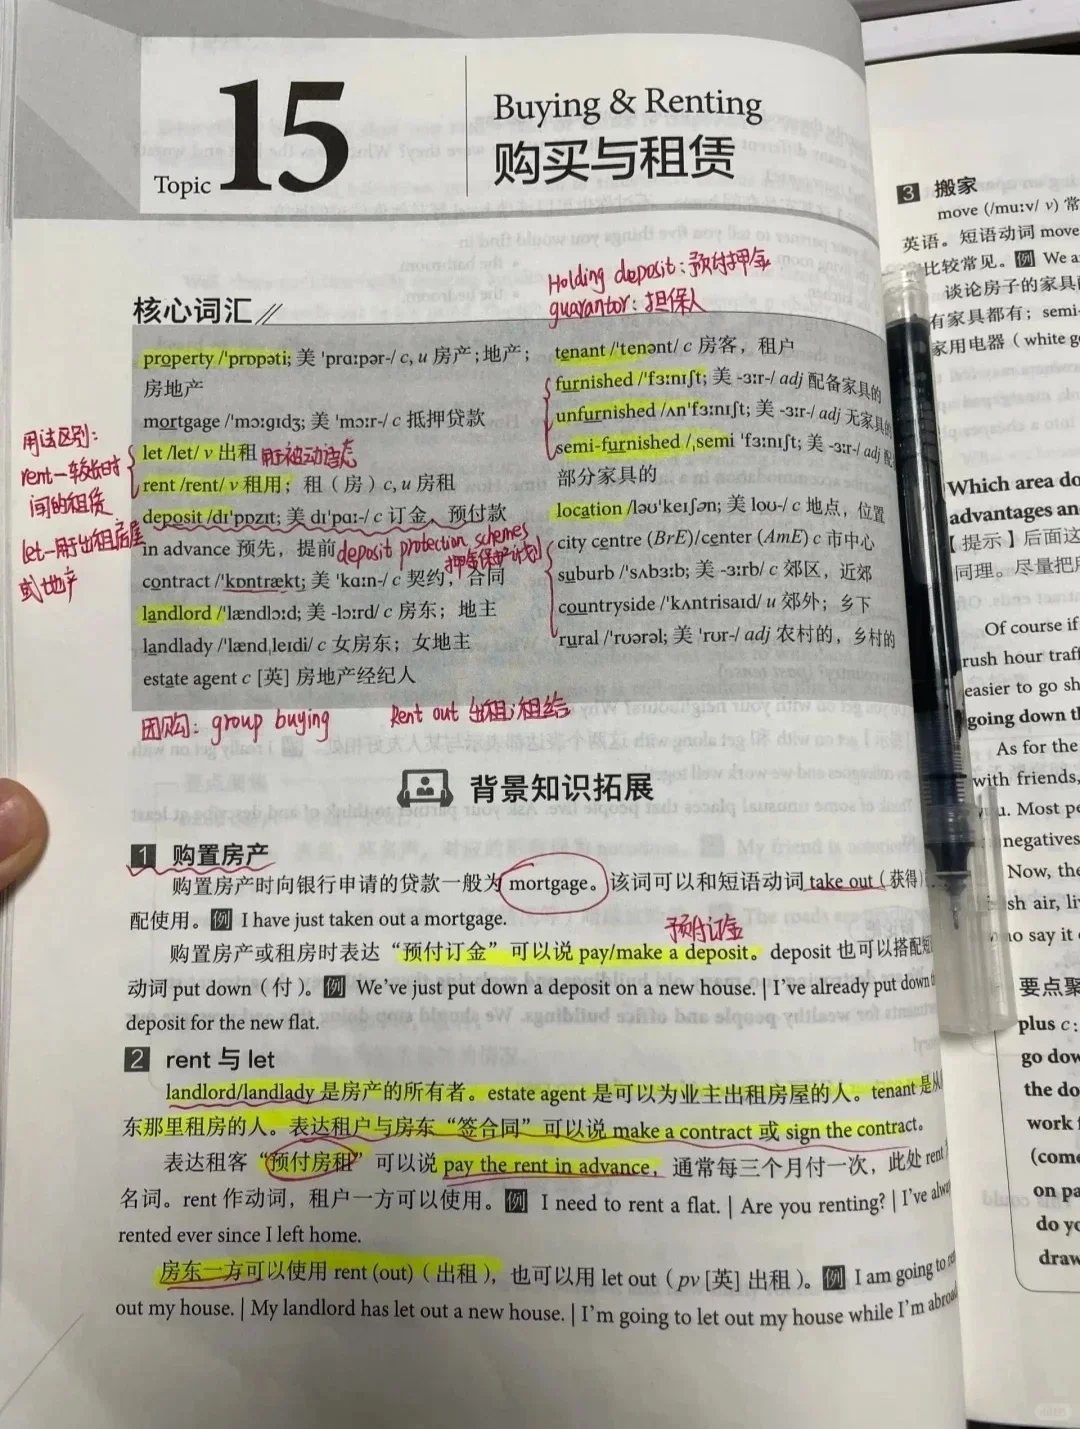 Topic 15
Buying & Renting
购买与租赁
Holding deposit: 预付押金
guarantor: 担保人
核心词汇
property /ˈprɒpəti; 美 ˈprɑːpər-/ c, u 房产；地产；
房地产
mortgage /ˈmɔːgɪdʒ; 美 ˈmɔːr-/ c 抵押贷款
let /let/ v 出租 用于被动语态
rent /rent/ v 租用；租（房）c, u 房租
deposit /dɪˈpɒzɪt; 美 dɪˈpɑː-/ c 订金，预付款
in advance 预先，提前 deposit protection schemes
押金保护计划
contract /ˈkɒntrækt; 美 ˈkɑːn-/ c 契约，合同
landlord /ˈlændlɔːd; 美 -lɔːrd/ c 房东；地主
landlady /ˈlændˌleɪdi/ c 女房东；女地主
estate agent c [英] 房地产经纪人
用法区别：
rent—较长时
间的租赁
let—用于出租房屋
或地产
tenant /ˈtenənt/ c 房客，租户
furnished /ˈfɜːnɪʃt; 美 -ɜːr-/ adj 配备家具的
unfurnished /ʌnˈfɜːnɪʃt; 美 -ɜːr-/ adj 无家具的
semi-furnished /ˌsemi ˈfɜːnɪʃt; 美 -ɜːr-/ adj 配
部分家具的
location /ləʊˈkeɪʃən; 美 loʊ-/ c 地点，位置
city centre (BrE)/center (AmE) c 市中心
suburb /ˈsʌbɜːb; 美 -ɜːrb/ c 郊区，近郊
countryside /ˈkʌntrisaɪd/ u 郊外；乡下
rural /ˈrʊərəl; 美 ˈrʊr-/ adj 农村的，乡村的
团购: group buying
Rent out 出租；租给
背景知识拓展
1 购置房产
购置房产时向银行申请的贷款一般为 mortgage。该词可以和短语动词 take out（获得）
配使用。例 I have just taken out a mortgage.
预付订金
购置房产或租房时表达“预付订金”可以说 pay/make a deposit。deposit 也可以搭配
动词 put down（付）。例 We've just put down a deposit on a new house. | I've already put down
deposit for the new flat.
2 rent 与 let
landlord/landlady 是房产的所有者。estate agent 是可以为业主出租房屋的人。tenant 是从
东那里租房的人。表达租户与房东“签合同”可以说 make a contract 或 sign the contract。
表达租客“预付房租”可以说 pay the rent in advance，通常每三个月付一次，此处 rent
名词。rent 作动词，租户一方可以使用。例 I need to rent a flat. | Are you renting? | I've
rented ever since I left home.
房东一方可以使用 rent (out)（出租），也可以用 let out（pv [英] 出租）。例 I am going to
out my house. | My landlord has let out a new house. | I'm going to let out my house while I'm
3 搬家
move (/muːv/ v) 常
英语。短语动词 move
比较常见。例 We
谈论房子的家具
有家具都有；semi-
家用电器（white
Which area do
advantages an
【提示】后面这
同理。尽量把
Of course if
rush hour traf
easier to go sh
going down t
As for the
with friends,
Most pe
negatives
Now, the
sh air, li
o say it
要点聚
plus c:
go dow
the do
work
(come
on pa
do yo
draw